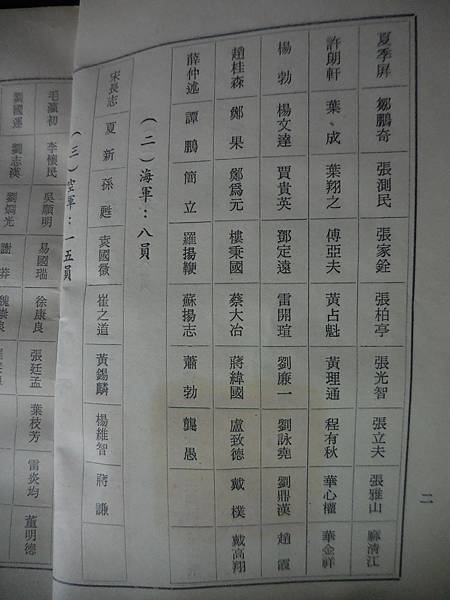 夏季屏 鄒鵬奇 張測民 張家銓 張柏亭 張光智 張立夫 張雅山 麻清江
許朗軒 葉成 葉翔之 傅亞夫 黃占魁 黃理通 程有秋 華心權 華金祥
楊勃 楊文達 賈貴英 鄧定遠 雷開瑄 劉廉一 劉詠堯 劉鼎漢 趙霞
趙桂森 鄭果 鄭為元 樓秉國 蔡大冶 蔣緯國 盧致德 戴樸 戴高翔
薛仲述 譚鵬 簡立 羅揚鞭 蘇揚志 蕭勃 龔愚
(二)海軍：八員
宋長志 夏新 孫甦 袁國徵 崔之道 黃錫麟 楊維智 蔣謙
(三)空軍：一五員
毛瀛初 李懷民 吳順明 易國瑞 徐康良 張廷孟 葉枝芳 雷炎均 董明德
劉國運 劉志漢 劉炯光 謝莽 魏崇良
二